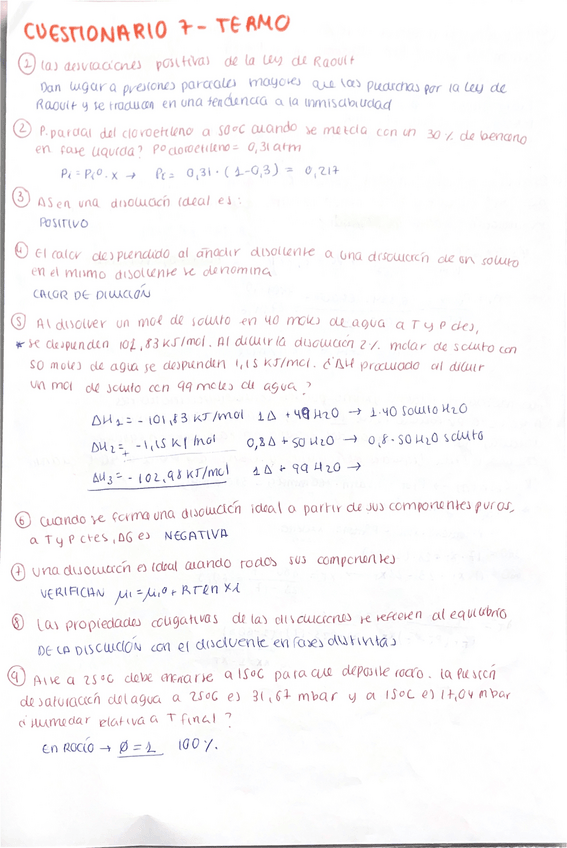 CUESTIONARIO 7 - TEAMO
① las desviaciones positivas de la Ley de Raoult
Dan lugar a presiones parciales mayores que las predichas por la ley de
Raoult y se traducen en una tendencia a la inmiscibilidad
② P. parcial del cloroetileno a 50ºC cuando se mezcla con un 30% de benceno
en fase líquida? Pº cloroetileno = 0,31 atm
Pi = Piº · x → Pi = 0,31 · (1-0,3) = 0,217
③ ΔS en una disolución ideal es:
POSITIVO
④ El calor desprendido al añadir disolvente a una disolución de un soluto
en el mismo disolvente se denomina
CALOR DE DILUCIÓN
⑤ Al disolver un mol de soluto en 40 moles de agua a T y P ctes,
* se desprenden 101,83 KJ/mol. Al diluir la disolución 2% molar de soluto con
50 moles de agua se desprenden 1,15 KJ/mol. ¿ΔH producido al diluir
un mol de soluto con 99 moles de agua?
ΔH1 = - 101,83 KJ/mol 1Δ + 49 H2O → 1·40 Soluto H2O
ΔH2 = -1,15 KJ/mol 0,8Δ + 50 H2O → 0,8·50 H2O soluto
ΔH3 = - 102,98 KJ/mol 1Δ + 99 H2O →
⑥ Cuando se forma una disolución ideal a partir de sus componentes puros,
a T y P ctes, ΔG es NEGATIVA
⑦ Una disolución es ideal cuando todos sus componentes
VERIFICAN μi = μiº + RT ln xi
⑧ Las propiedades coligativas de las disoluciones se refieren al equilibrio
DE LA DISOLUCIÓN con el disolvente en fases distintas
⑨ Aire a 25ºC debe enfriarse a 15ºC para que deposite rocío. La presión
de saturación del agua a 25ºC es 31,67 mbar y a 15ºC es 17,04 mbar
¿humedad relativa a T final?
En ROCÍO → Ø = 1 100%.